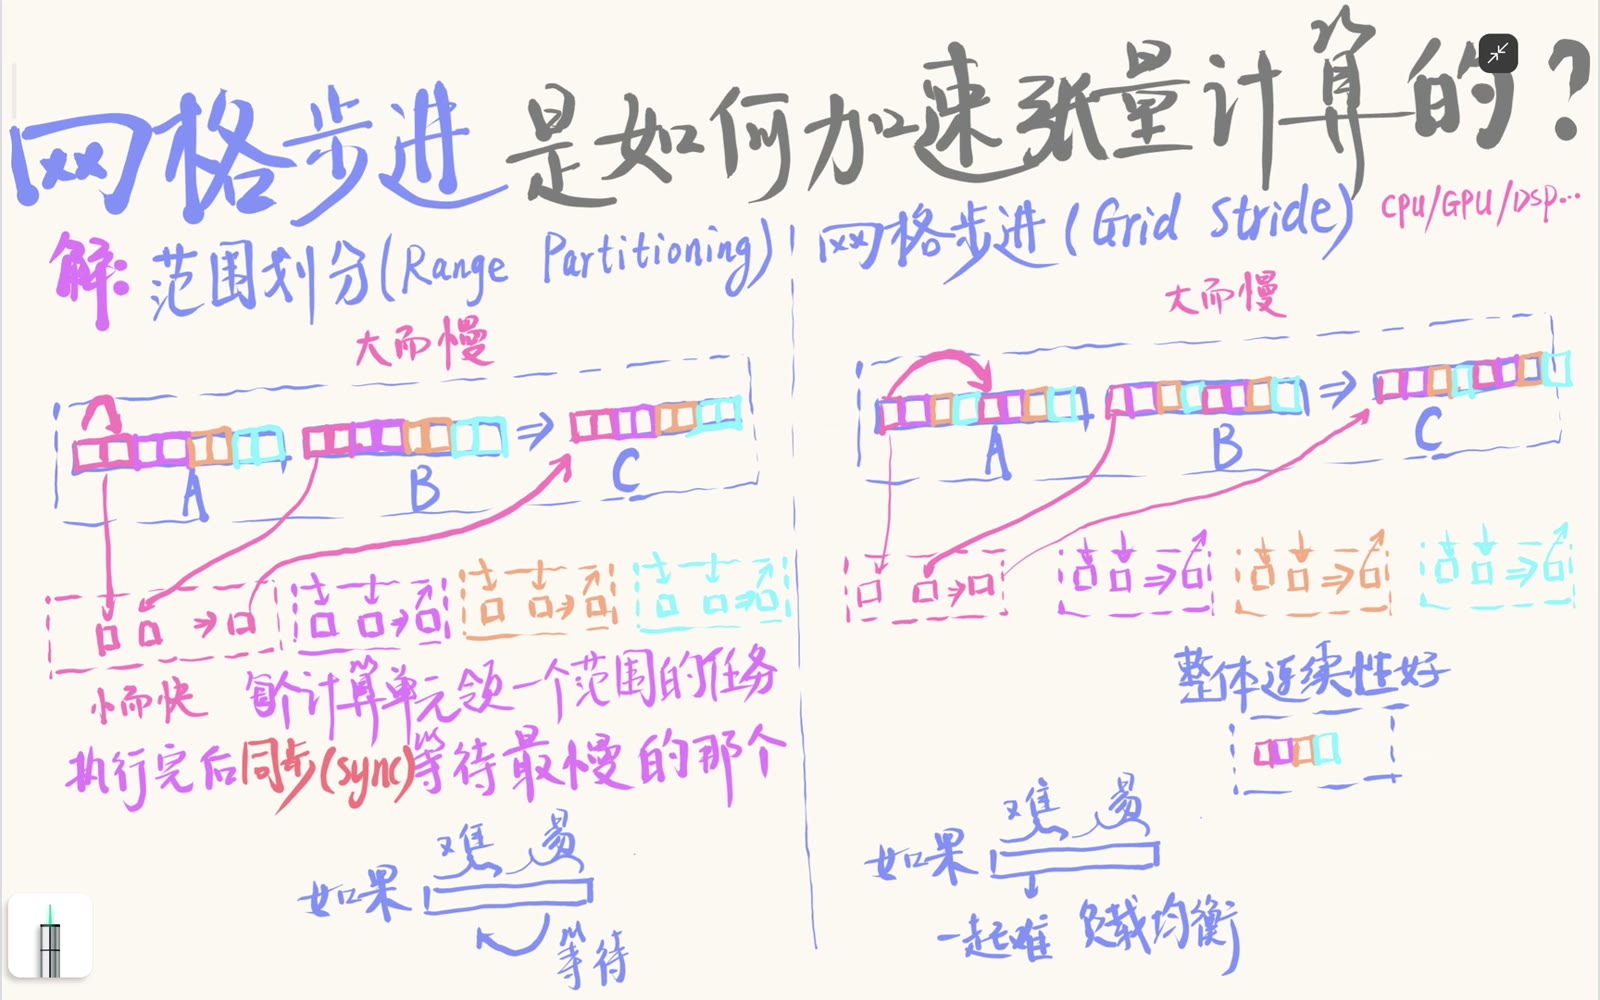 网格步进是如何加速张量计算的?
CPU/GPU/DSP...
解:范围划分(Range Partitioning)
大而慢
A
B
⇒
C
小而快
每个计算单元领一个范围的任务
执行完后同步(sync)等待最慢的那个
难 易
如果
等待
网格步进(Grid Stride)
大而慢
A
B
⇒
C
整体连续性好
难 易
如果
一起难 负载均衡